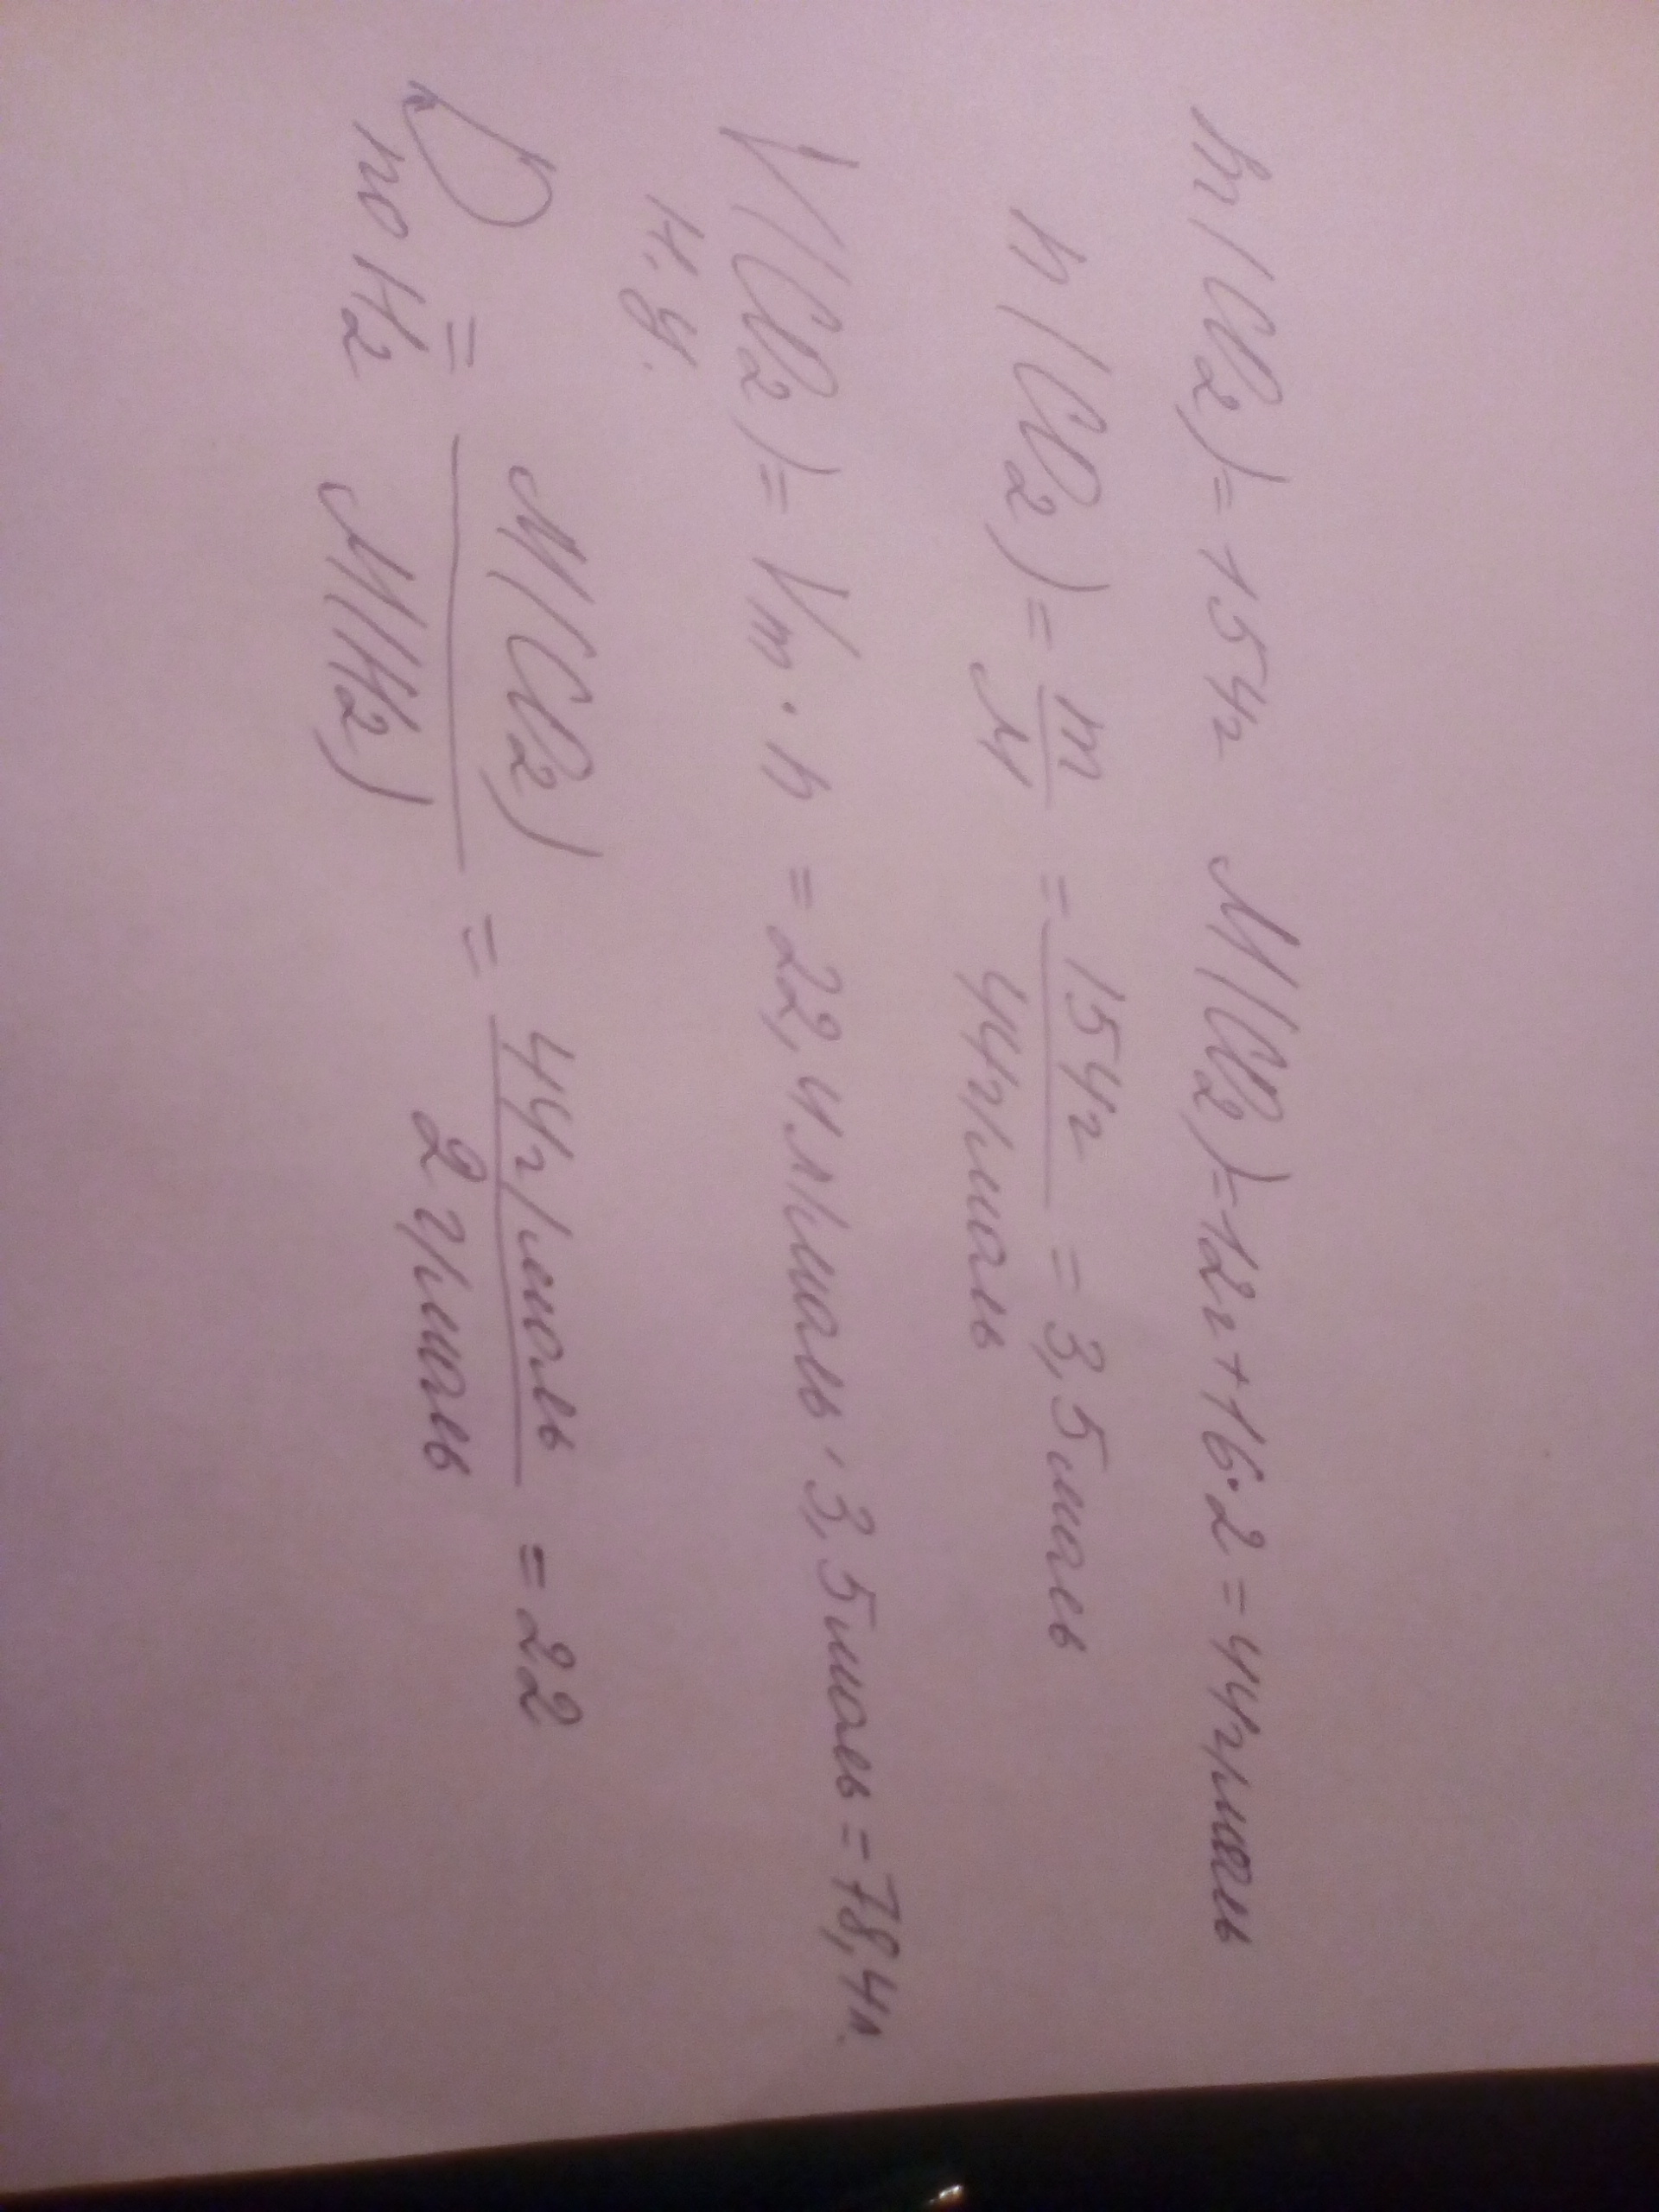 m(CO2)=154г M(CO2)=12г+16·2=44г/моль
n(CO2)=m/M=154г/44г/моль=3,5моль
V(CO2)=Vm·n=22,4л/моль·3,5моль=78,4л.
н.у.
D по H2=M(CO2)/M(H2)=44г/моль/2г/моль=22